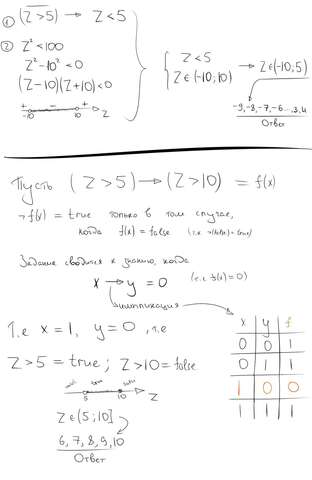 ① (Z > 5) → Z < 5
② Z² < 100
Z² - 10² < 0
(Z - 10)(Z + 10) < 0
+ - +
-10 10 Z
Z < 5
Z ∈ (-10; 10) → Z ∈ (-10; 5)
-9, -8, -7, -6 ... 3, 4
Ответ
Пусть (Z > 5) → (Z > 10) = f(x)
¬f(x) = true только в том случае,
когда f(x) = false (т.к. ¬(false) = true)
Задание сводится к знанию, когда
x → y = 0 (т.е. f(x) = 0)
импликация
Т.е x = 1, y = 0, т.е
Z > 5 = true; Z > 10 = false
5 10 Z
Z ∈ (5; 10]
6, 7, 8, 9, 10
Ответ
x y f
0 0 1
0 1 1
1 0 0
1 1 1